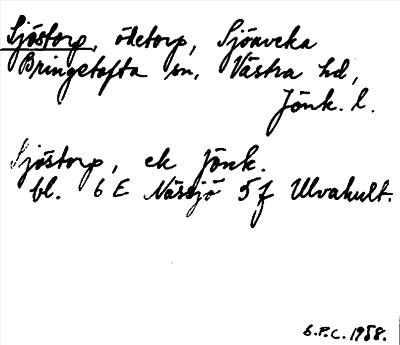 Sjöstorp, ödetorp, Sjöaveka
Bringetofta sn, Västra hd,
Jönk. l.
Sjöstorp, ek Jönk.
bl. 6 E Nässjö 5 f Ulvahult.
S.P.C. 1988.